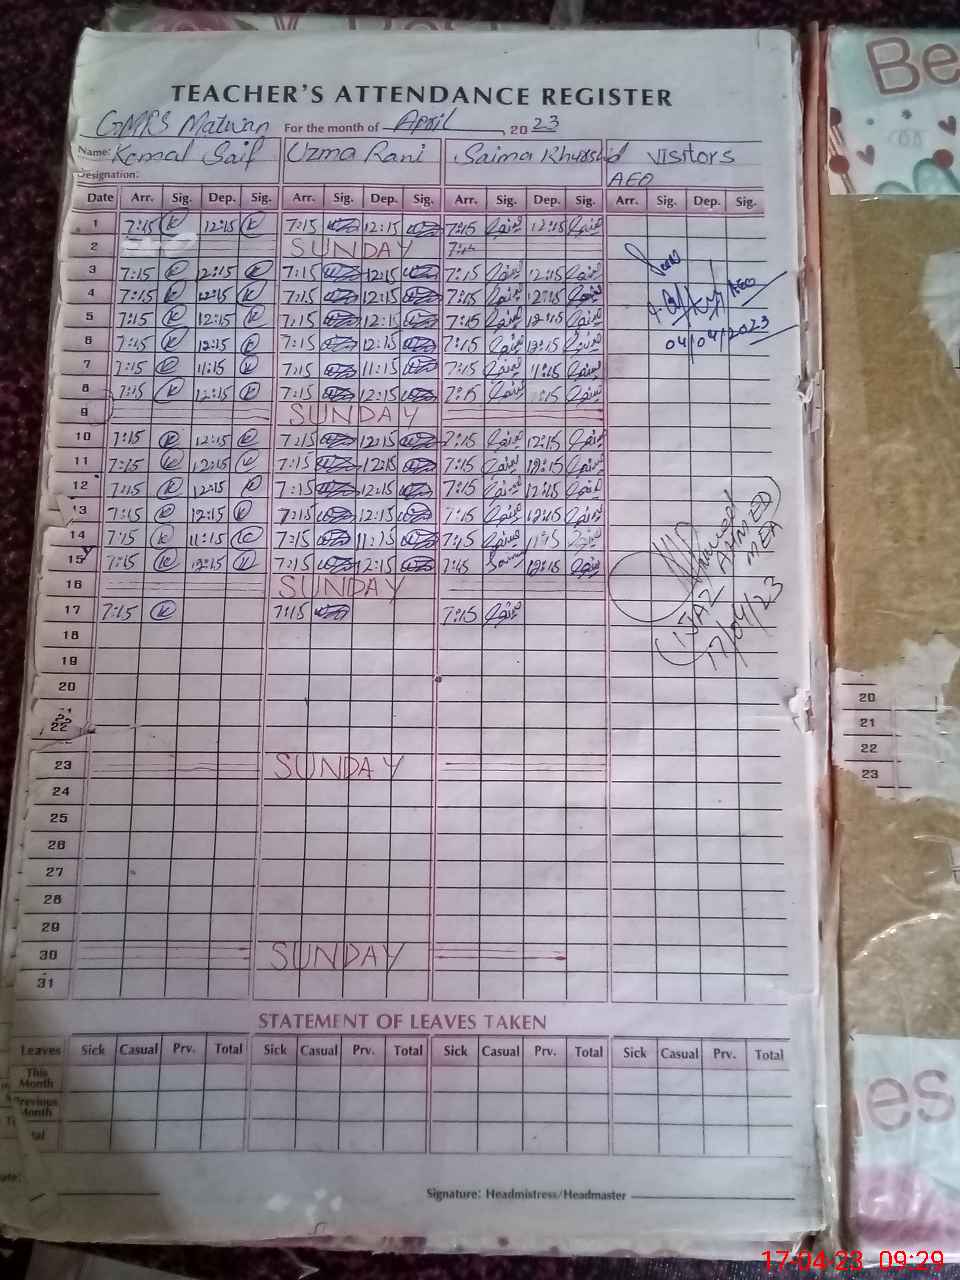 Be
TEACHER'S ATTENDANCE REGISTER
GMPS Malwan For the month of April, 2023
Name: Komal Saif Uzma Rani Saima Khurshid Visitors
Designation: AEO
Date Arr. Sig. Dep. Sig. Arr. Sig. Dep. Sig. Arr. Sig. Dep. Sig. Arr. Sig. Dep. Sig.
1 7:15 K 12:15 K 7:15 12:15 7:15 12:15
2 SUNDAY
3 7:15 K 12:15 K 7:15 12:15 7:15 12:15
4 7:15 K 12:15 K 7:15 12:15 7:15 12:15
AEO
5 7:15 K 12:15 K 7:15 12:15 7:15 12:15
04/04/2023
6 7:15 K 12:15 K 7:15 12:15 7:15 12:15
7 7:15 K 11:15 K 7:15 11:15 7:15 11:15
8 7:15 K 12:15 K 7:15 12:15 7:15
9 SUNDAY
10 7:15 K 12:15 K 7:15 12:15 7:15 12:15
11 7:15 K 12:15 K 7:15 12:15 7:15 12:15
12 7:15 K 12:15 K 7:15 12:15 7:15 12:15
13 7:15 K 12:15 K 7:15 12:15 7:15 12:15
14 7:15 K 11:15 K 7:15 11:15 7:15 11:15
15 7:15 K 12:15 K 7:15 12:15 12:15
16 SUNDAY
(IJAZ AHMED)
MEA
17/04/23
17 7:15 K 7:15 7:15
18
19
20
21
22
23 SUNDAY
24
25
26
27
28
29
30 SUNDAY
31
20
21
22
23
STATEMENT OF LEAVES TAKEN
Leaves Sick Casual Prv. Total Sick Casual Prv. Total Sick Casual Prv. Total Sick Casual Prv. Total
This Month
Previous Month
tal
ies
Signature: Headmistress/Headmaster
17-04-23 09:29